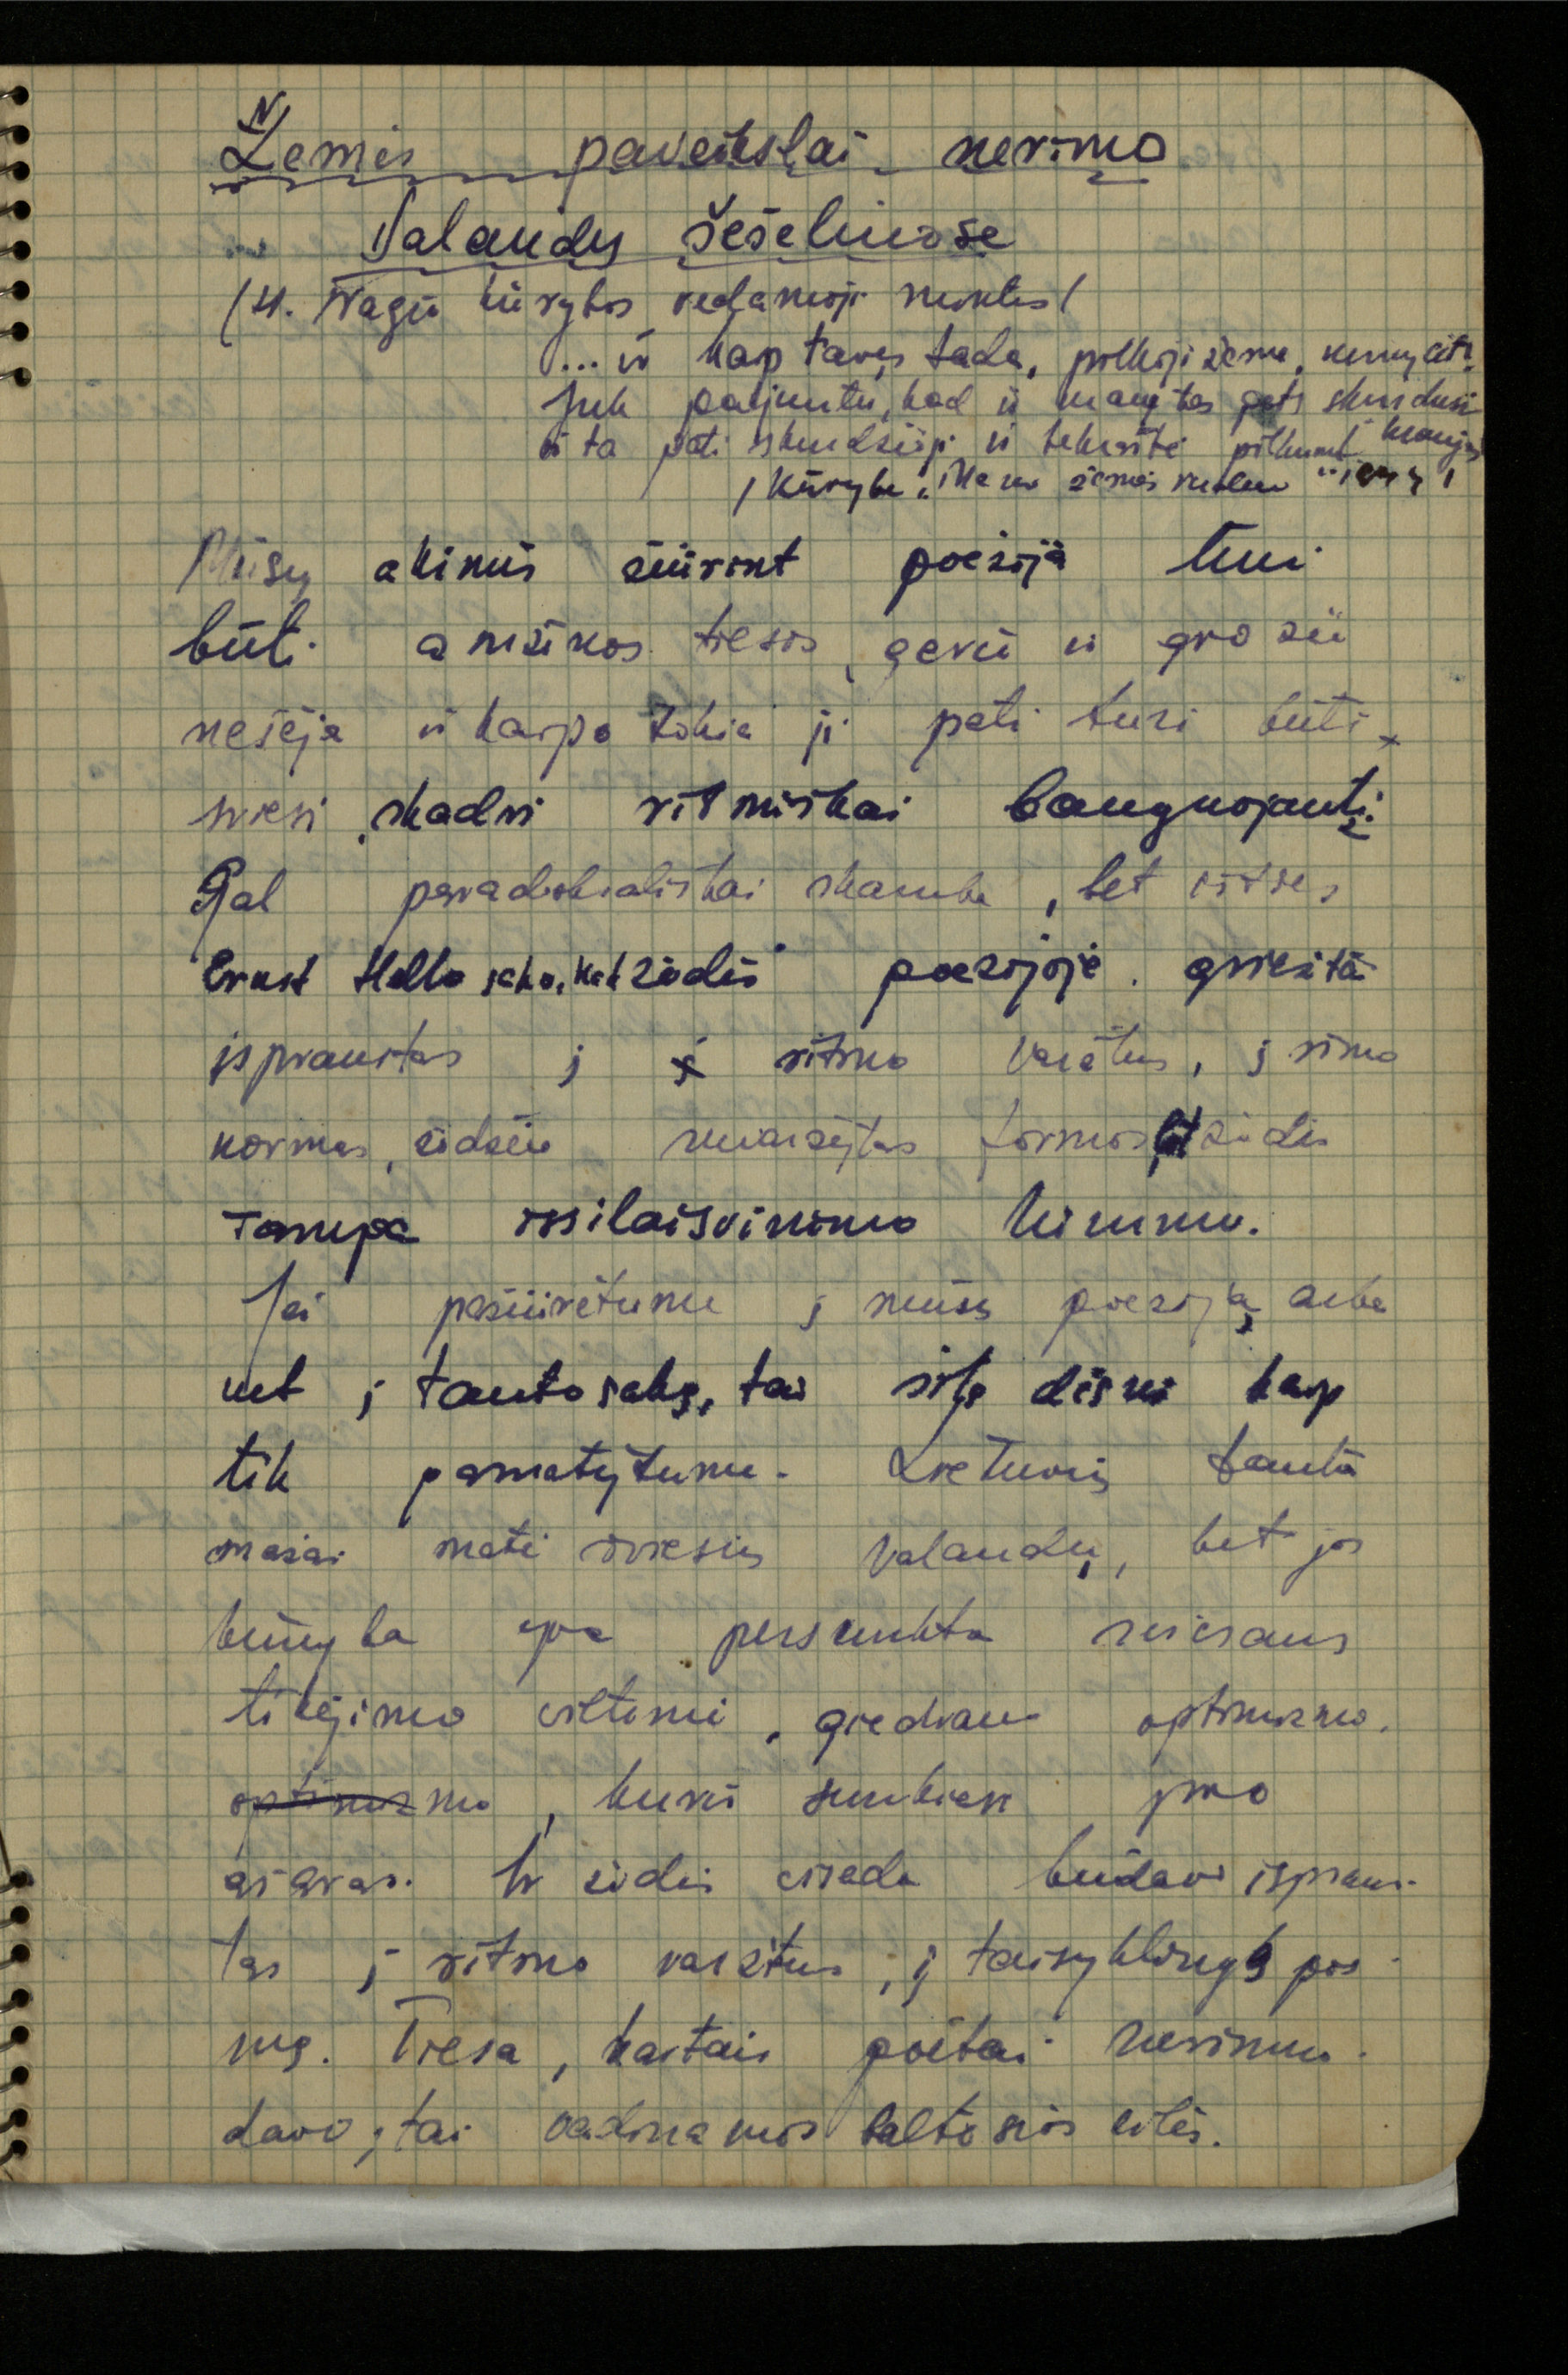 Žemės paveikslai nerimo
Valandų šešėliuose
(H. Nagio kūrybos vedamoji mintis)
... ir kaip tavęs tada, pilkoji žeme, nemylėti
Juk pajuntu, kad ir manyje tas pats skurdus
ir ta pati skundžiasi ir pilkuma
/Kūryba, žemės
Mūsų akimis žiūrint poezija turi
būti amžinos tiesos, gėrio ir grožio
nešėja ir kaipo tokia ji pati turi būti
šviesi, skaidri ritmiškai banguojanti.
Gal paradoksališkai skamba, bet vistiek
Ernst Hello sako, kad žodis poezijoje griežtai
įspraustas į ritmo varžtus, į rimo
normas, žodžiu suvaržytas formos, bet žodis
tampa išsilaisvinimo himnu.
Jei pažiūrėtume į mūsų poeziją arba
net į tautosaką, tai šitą dėsnį kaip
tik pamatytume. Lietuvių tauta
mažai matė šviesių valandų, bet jos
kūryba yra persunkta šviesaus
tikėjimo viltimi, giedraus optimizmo,
optimizmo, kuris sunkiasi pro
ašaras. Ir žodis visada būdavo įspraus-
tas į ritmo varžtus, į taisyklingą pos-
mą. Tiesa, kartais poetai nerimuo-
davo, tai vadinamos baltosios eilės.